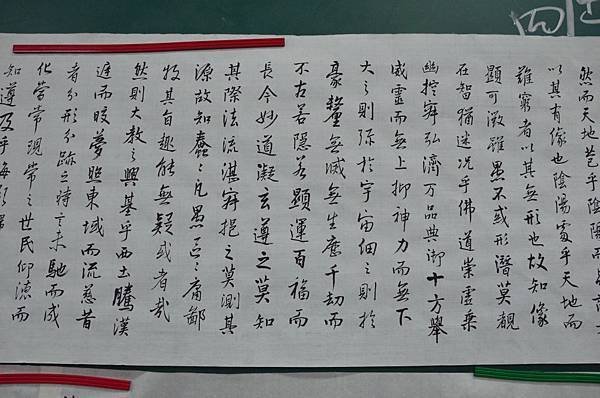 然而天地苞乎陰陽而易
以其有像也陰陽處乎天地而
難窮者以其無形也故知像
顯可徵雖愚不惑形潛莫覩
在智猶迷況乎佛道崇虛乗
幽控寂弘濟万品典御十方舉
威靈而無上抑神力而無下
大之則弥於宇宙細之則於
豪釐無滅無生歷千劫而
不古若隱若顯運百福而
長今妙道凝玄遵之莫知
其際法流湛寂挹之莫測其
源故知蠢〻凡愚區〻庸鄙
投其旨趣能無疑或者哉
然則大教之興基乎西土騰漢
庭而皎夢照東域而流慈昔
者分形分跡之時言未馳而成
化當常現常之世民仰德而
知遵及乎晦影歸